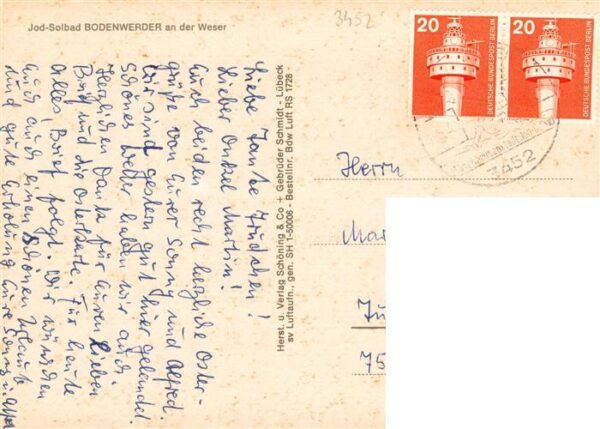 Jod-Solbad BODENWERDER an der Weser
3452
20
DEUTSCHE BUNDESPOST BERLIN
20
DEUTSCHE BUNDESPOST BERLIN
3452
Liebe Tante Trudchen!
Lieber Onkel Martin!
Euch beiden recht herzliche Oster-
grüße von Eurer Sonny und Alfred.
Wir sind gestern gut hier gelandet.
Schönes Wetter haben wir auch.
Herzlichen Dank für Euren lieben
Brief und die Osterkarte. Für heute
alles! Brief folgt. Wir wünschen
Euch auch einen schönen Urlaub
und gute Erholung Eure Sonny u. Alfred
Herst. u. Verlag Schöning & Co + Gebrüder Schmidt - Lübeck
sv Luftaufn., gen. SH 1-50006 - Bestellnr. Bdw Luft RS 1728
Herrn
Mar
75